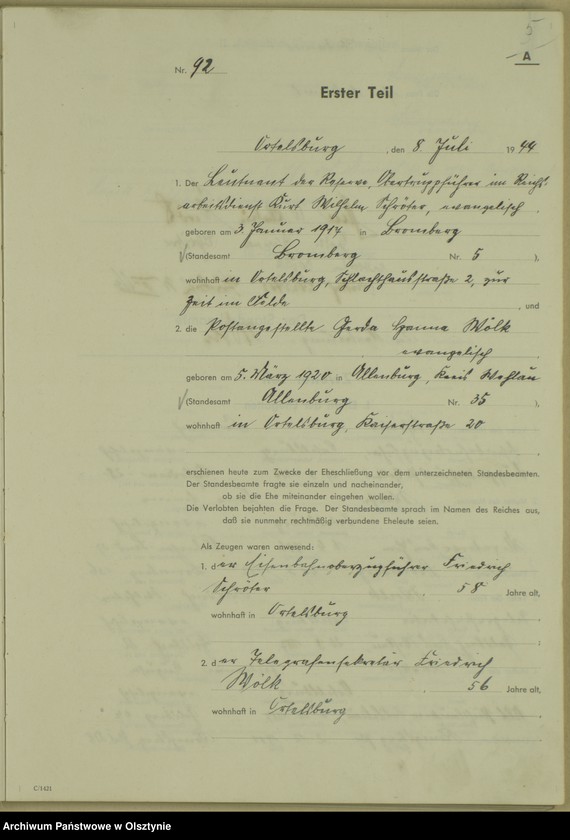 5
A
Nr. 92
Erster Teil
Ortelsburg, den 8. Juli 1944
1. Der Leutnant der Reserve, Obertruppführer im Reichs-
arbeitsdienst Kurt Wilhelm Schröter, evangelisch
geboren am 3. Januar 1914 in Bromberg
(Standesamt Bromberg Nr. 5 ),
wohnhaft in Ortelsburg, Schlachthausstraße 2, zur
Zeit im Felde, und
2. die Postangestellte Gerda Hanna Wölk
evangelisch
geboren am 5. März 1920 in Allenburg, Kreis Wehlau
(Standesamt Allenburg Nr. 35 ),
wohnhaft in Ortelsburg, Kaiserstraße 20
erschienen heute zum Zwecke der Eheschließung vor dem unterzeichneten Standesbeamten.
Der Standesbeamte fragte sie einzeln und nacheinander,
ob sie die Ehe miteinander eingehen wollen.
Die Verlobten bejahten die Frage. Der Standesbeamte sprach im Namen des Reiches aus,
daß sie nunmehr rechtmäßig verbundene Eheleute seien.
Als Zeugen waren anwesend:
1. der Eisenbahnoberzugführer Friedrich
Schröter, 58 Jahre alt,
wohnhaft in Ortelsburg
2. der Telegrafensekretär Friedrich
Wölk, 56 Jahre alt,
wohnhaft in Ortelsburg
C/1421
Archiwum Państwowe w Olsztynie